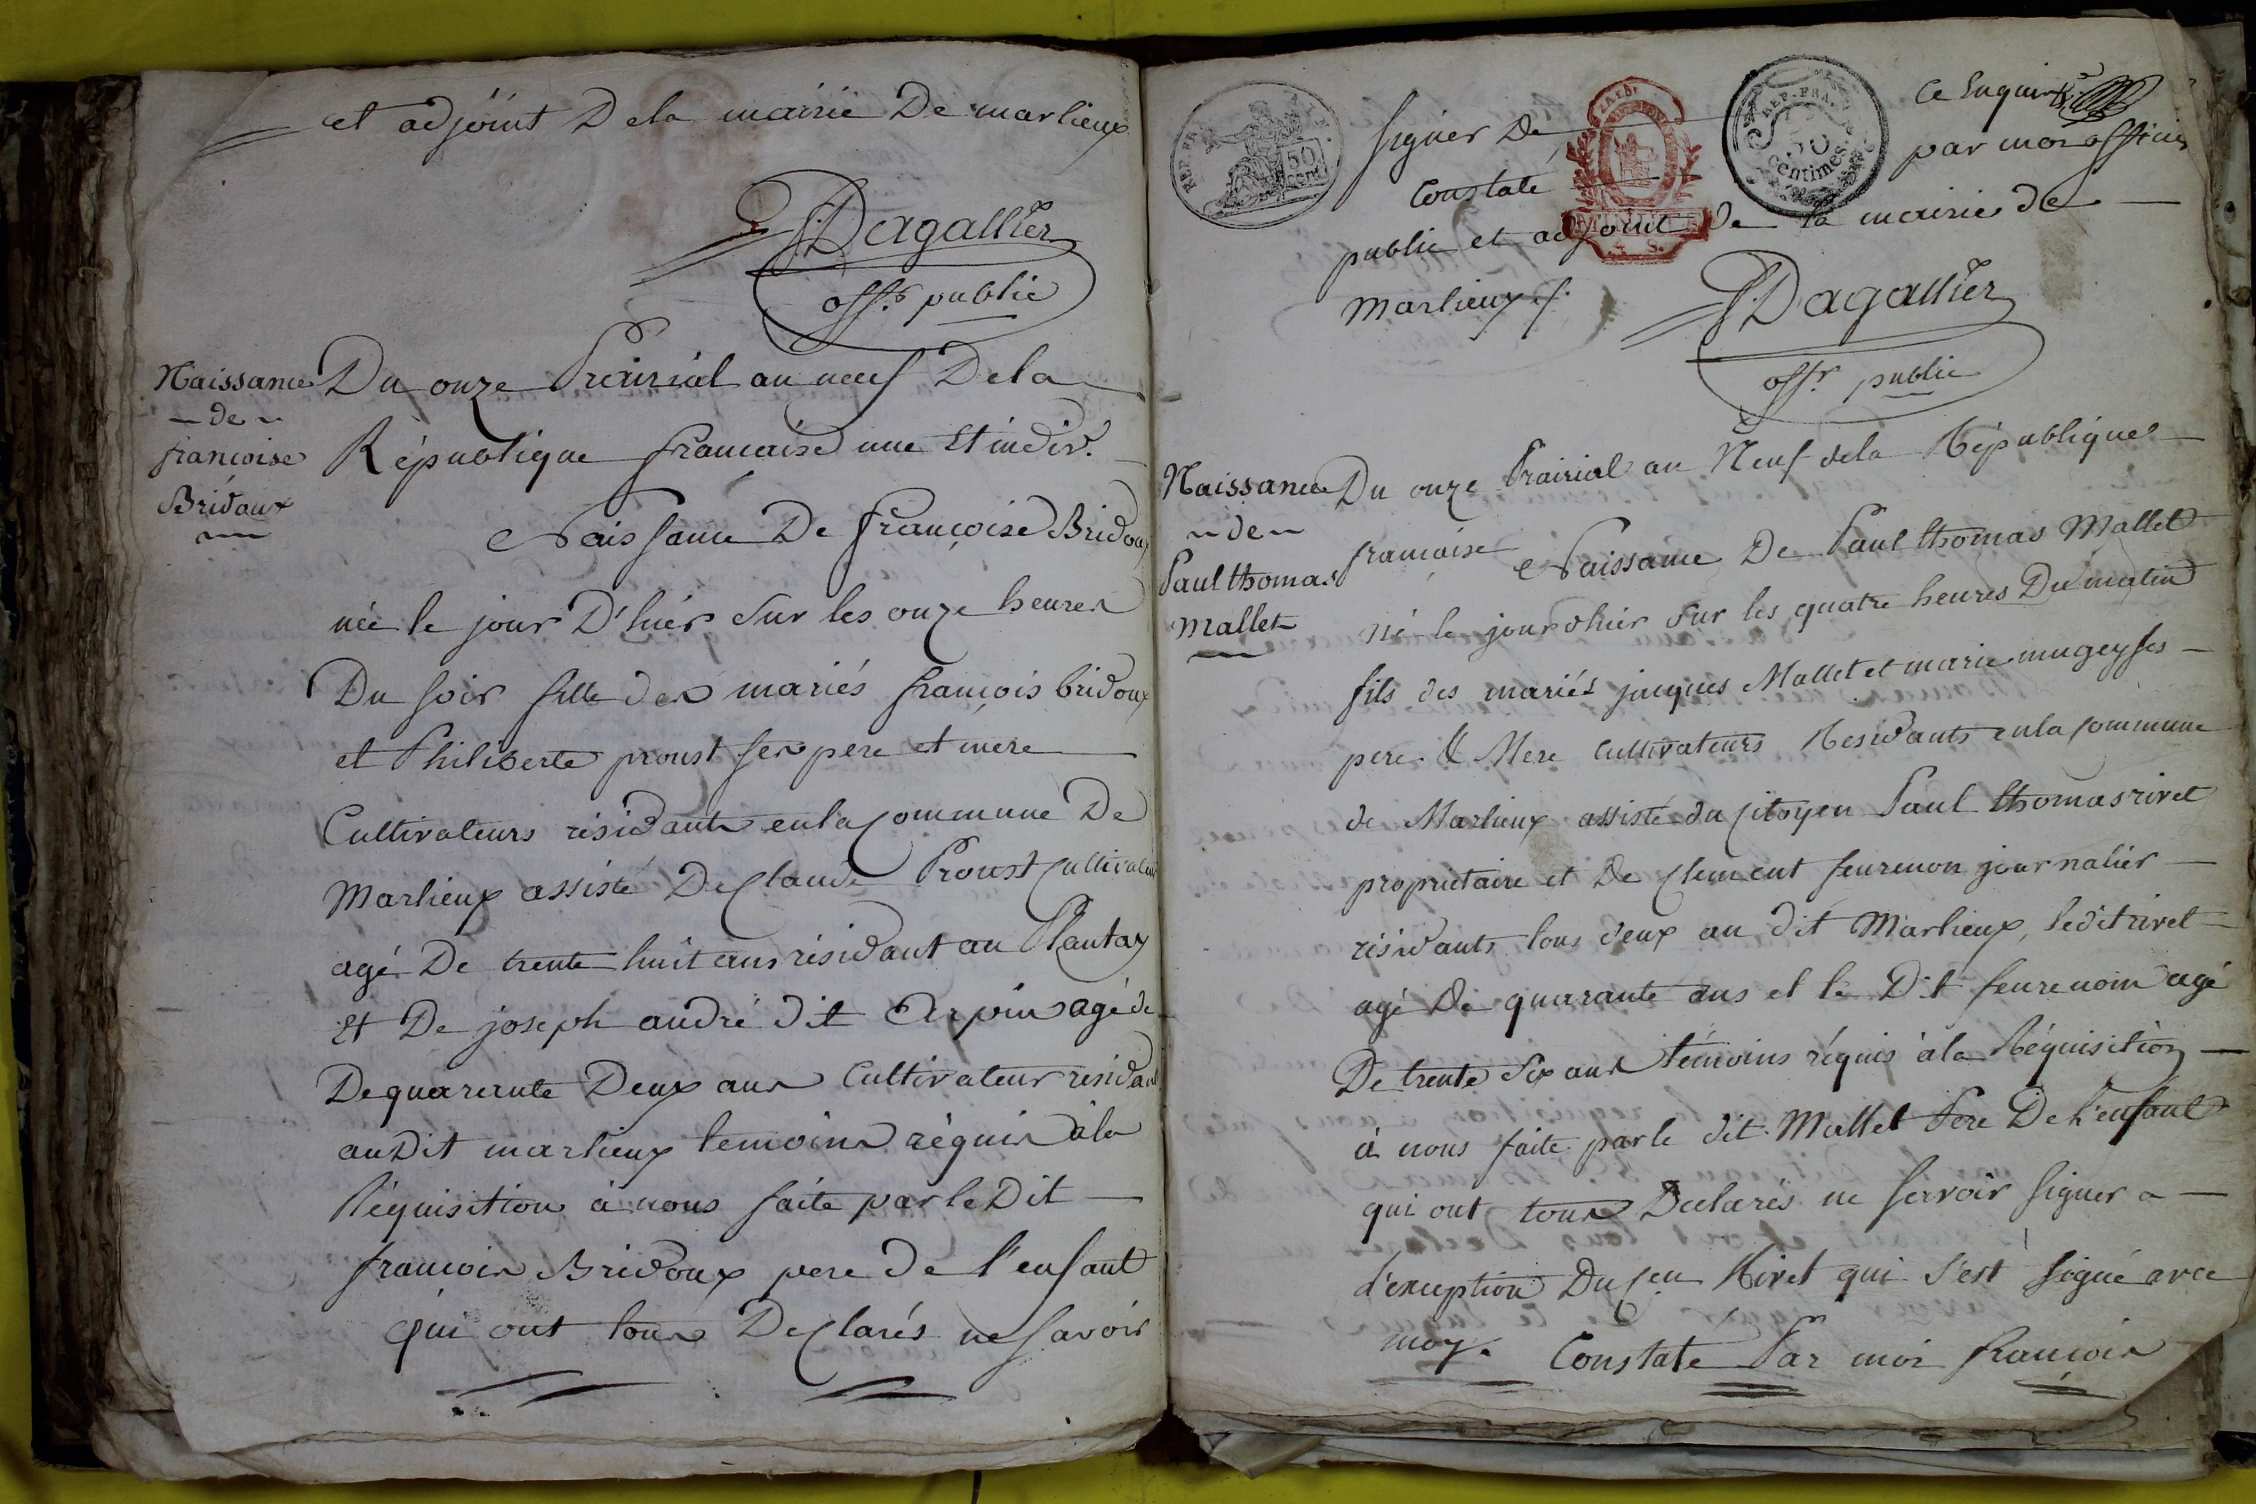 et adjoint Dela mairie De marlieux
Dagallier
offr. public
Naissance
de
francoise
Bridoux
Du onze Prairial an neuf Dela
République francaise une Et indiv.
Naissance De françoise Bridoux
née le jour D'hiér sur les onze heures
Du soir fille des mariés françois bridoux
et Philiberte proust ses pere et mere
Cultivateurs résidants en la Commune De
Marlieux assisté De Claude Proust Cultivateur
agé De trente huit ans résidant au Plantay
Et De joseph andré dit Arpin agé de
De quarante Deux ans Cultivateur résidant
au Dit marlieux temoins réquis à la
Réquisition à nous faite par le Dit
francois Bridoux pere de l'enfant
qui ont tous Declarés ne savoir
signer De ce enquis
REP. FRA.
50
cent.
REP. FRA.
50
centimes.
Constaté par moi officier
public et adjoint de la mairie de
Marlieux
Dagallier
offr. public
Naissance
de
Paul thomas
Mallet
Du onze Prairial an Neuf dela République
francaise Naissance De Paul thomas Mallet
né le jour d'hiér sur les quatre heures Du matin
fils des mariés jacques Mallet et marie mugey ses
pere & Mere Cultivateurs Residants en la Commune
de Marlieux assisté du Citoyen Paul thomas rivet
propriétaire et De Clement feurenon journalier
résidants tous deux au dit Marlieux, le dit rivet
agé De quarante ans et le Dit feurenoin agé
De trente six ans témoins réquis à la Réquisition
à nous faite par le dit Mallet Pere De l'enfant
qui ont tous Declarés ne scavoir signer a
l'exception Du Cen Rivet qui s'est signé avec
moy. Constaté Par moi françois